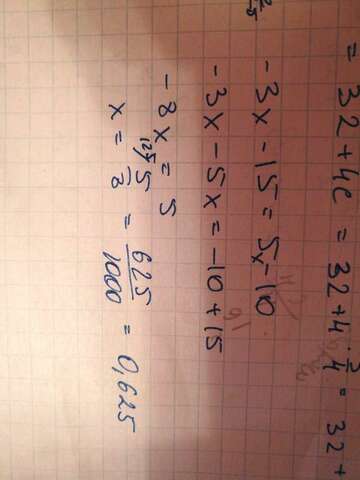 = 32 + 4e = 32 + 4 · 3/4 = 32 +
-3x - 15 = 5x - 10
-3x - 5x = -10 + 15
-8x = 5
x = 125/ 5/8 = 625/1000 = 0,625